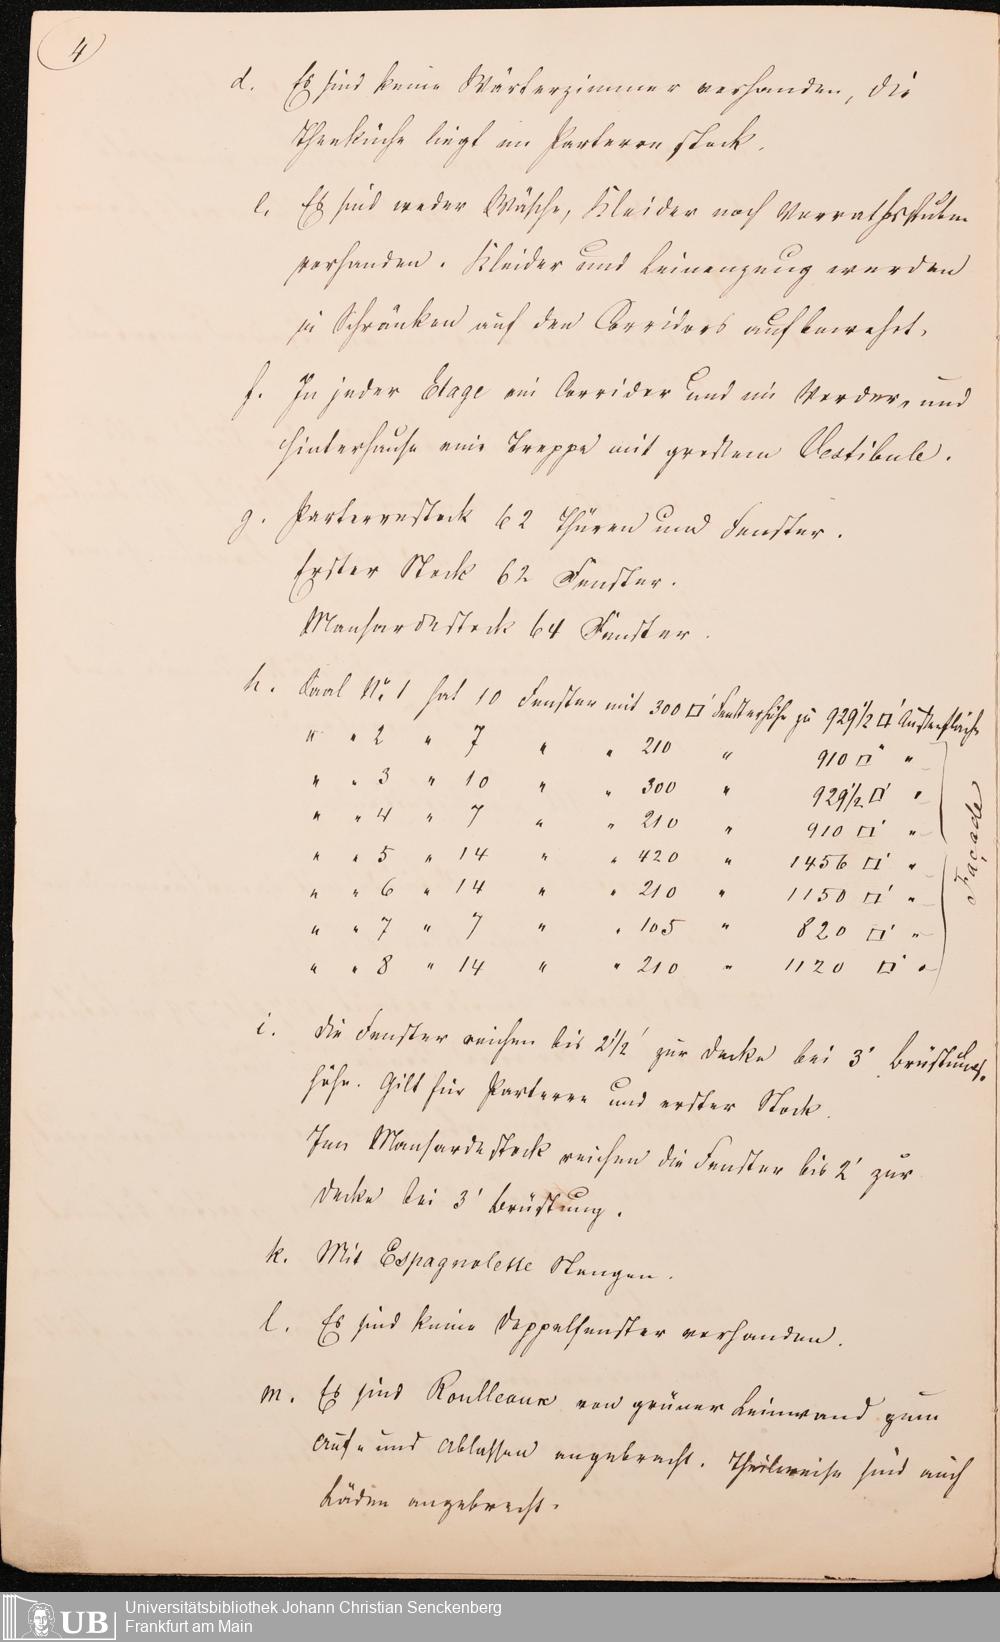 4
d. Es sind keine Wärterzimmer vorhanden, die
Theeküche liegt im Parterre stock.
e. Es sind weder Wäsche, Kleider noch Vorrathsstuben
vorhanden. Kleider und Leinenzeug werden
in Schränken auf den Corridors aufbewahrt.
f. In jeder Etage ein Corridor und im Vorder- und
Hinterhause eine Treppe mit großem Vestibule.
g. Parterrestock 62 Thüren und Fenster.
Erster Stock 62 Fenster.
Mansardestock 64 Fenster.
h. Saal No. 1 hat 10 Fenster mit 300 □' Fensterhöhe zu 929 1/2 □' Aussenfläche
" " 2 " 7 " " 210 " 910 □' "
" " 3 " 10 " " 300 " 929 1/2 □' "
" " 4 " 7 " " 210 " 910 □' "
" " 5 " 14 " " 420 " 1456 □' "
" " 6 " 14 " " 210 " 1150 □' "
" " 7 " 7 " " 105 " 820 □' "
" " 8 " 14 " " 210 " 1120 □' "
Façade
i. Die Fenster reichen bis 2 1/2' zur Decke bei 3' Brüstungs-
höhe. Gilt für Parterre und erster Stock.
Im Mansardestock reichen die Fenster bis 2' zur
Decke bei 3' Brüstung.
k. Mit Espagnolette Stangen.
l. Es sind keine Doppelfenster vorhanden.
m. Es sind Roulleaux von grüner Leinwand zum
Auf- und Ablassen angebracht. Theilweise sind auch
Läden angebracht.
UB
Universitätsbibliothek Johann Christian Senckenberg
Frankfurt am Main